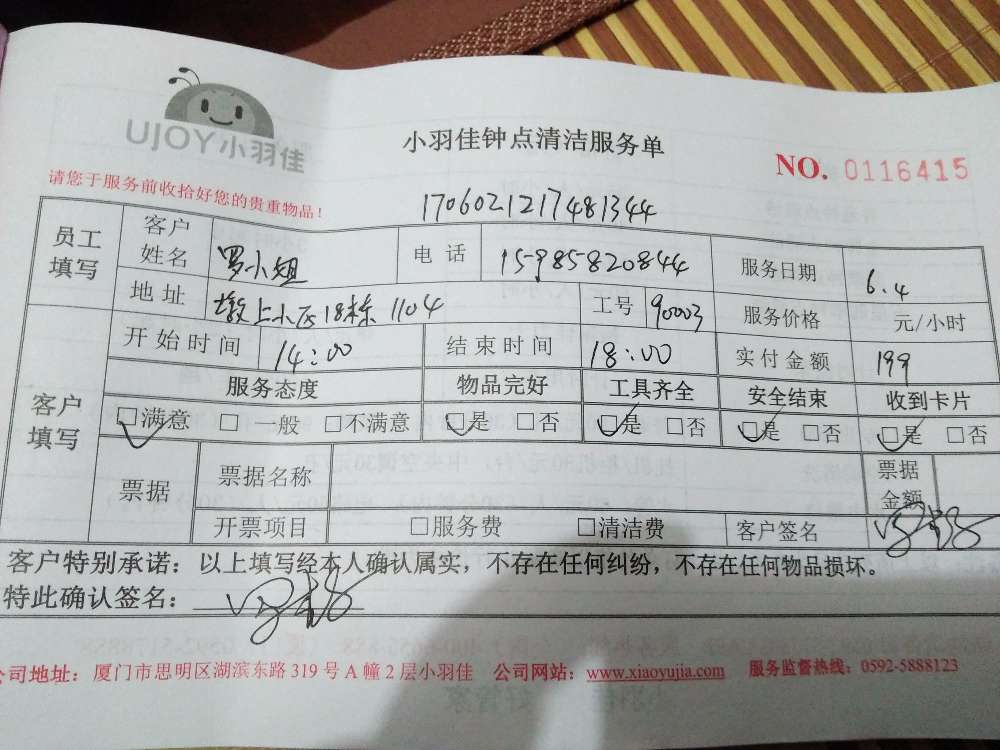 UJOY小羽佳
小羽佳钟点清洁服务单
NO. 0116415
请您于服务前收拾好您的贵重物品！
1706021217481344
员工填写 客户姓名 罗小姐 电话 15985820844 服务日期 6.4
地址 墩上小区18栋 1104 工号 90003 服务价格 元/小时
客户填写 开始时间 14:00 结束时间 18:00 实付金额 199
服务态度 物品完好 工具齐全 安全结束 收到卡片
☑满意 □一般 □不满意 ☑是 □否 ☑是 □否 ☑是 □否 ☑是 □否
票据 票据名称 票据金额
开票项目 □服务费 □清洁费 客户签名
客户特别承诺：以上填写经本人确认属实，不存在任何纠纷，不存在任何物品损坏。
特此确认签名：
公司地址：厦门市思明区湖滨东路319号A幢2层小羽佳 公司网站：www.xiaoyujia.com 服务监督热线：0592-5888123